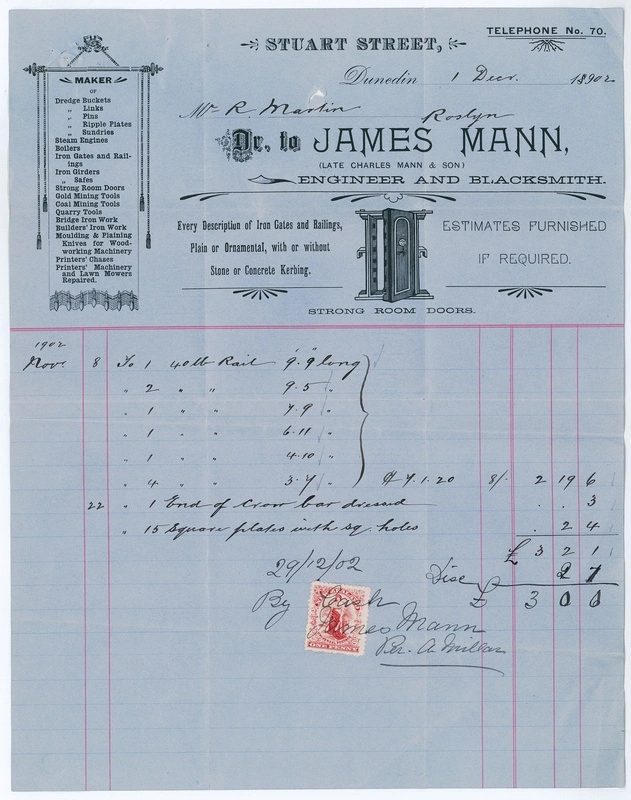 STUART STREET,
TELEPHONE No. 70.
Dunedin 1 Decr. 1902
Mr R. Martin
Roslyn
Dr. to JAMES MANN,
(LATE CHARLES MANN & SON)
ENGINEER AND BLACKSMITH.
MAKER
OF
Dredge Buckets
„ Links
„ Pins
„ Ripple Plates
„ Sundries
Steam Engines
Boilers
Iron Gates and Rail-
ings
Iron Girders
„ Safes
Strong Room Doors
Gold Mining Tools
Coal Mining Tools
Quarry Tools
Bridge Iron Work
Builders' Iron Work
Moulding & Plaining
Knives for Wood-
working Machinery
Printers' Chases
Printers' Machinery
and Lawn Mowers
Repaired.
Every Description of Iron Gates and Railings,
Plain or Ornamental, with or without
Stone or Concrete Kerbing.
ESTIMATES FURNISHED
IF REQUIRED.
STRONG ROOM DOORS.
1902
Nov. 8 To 1 40 lb Rail 9' 9" long
„ 2 „ „ 9.5 „
„ 1 „ „ 7.9 „
„ 1 „ „ 6.11 „
„ 1 „ „ 4.10 „
„ 4 „ „ 3.7 „ 7.1.20 8/- 2 19 6
22 „ 1 End of Crow bar dressed . . 3
„ 15 Square plates with sq. holes . 2 4
£ 3 2 1
29/12/02 Disc
By Cash £ 3 0 6
James Mann
Per. A Millar
ONE PENNY